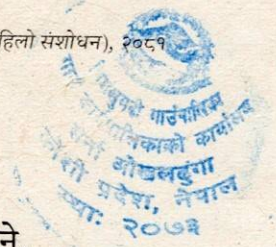 हिलो संशोधन), २०८१
गाउँपालिका
कार्यपालिकाको कार्यालय
ओखलढुंगा
कोशी प्रदेश, नेपाल
स्था: २०७३
ने